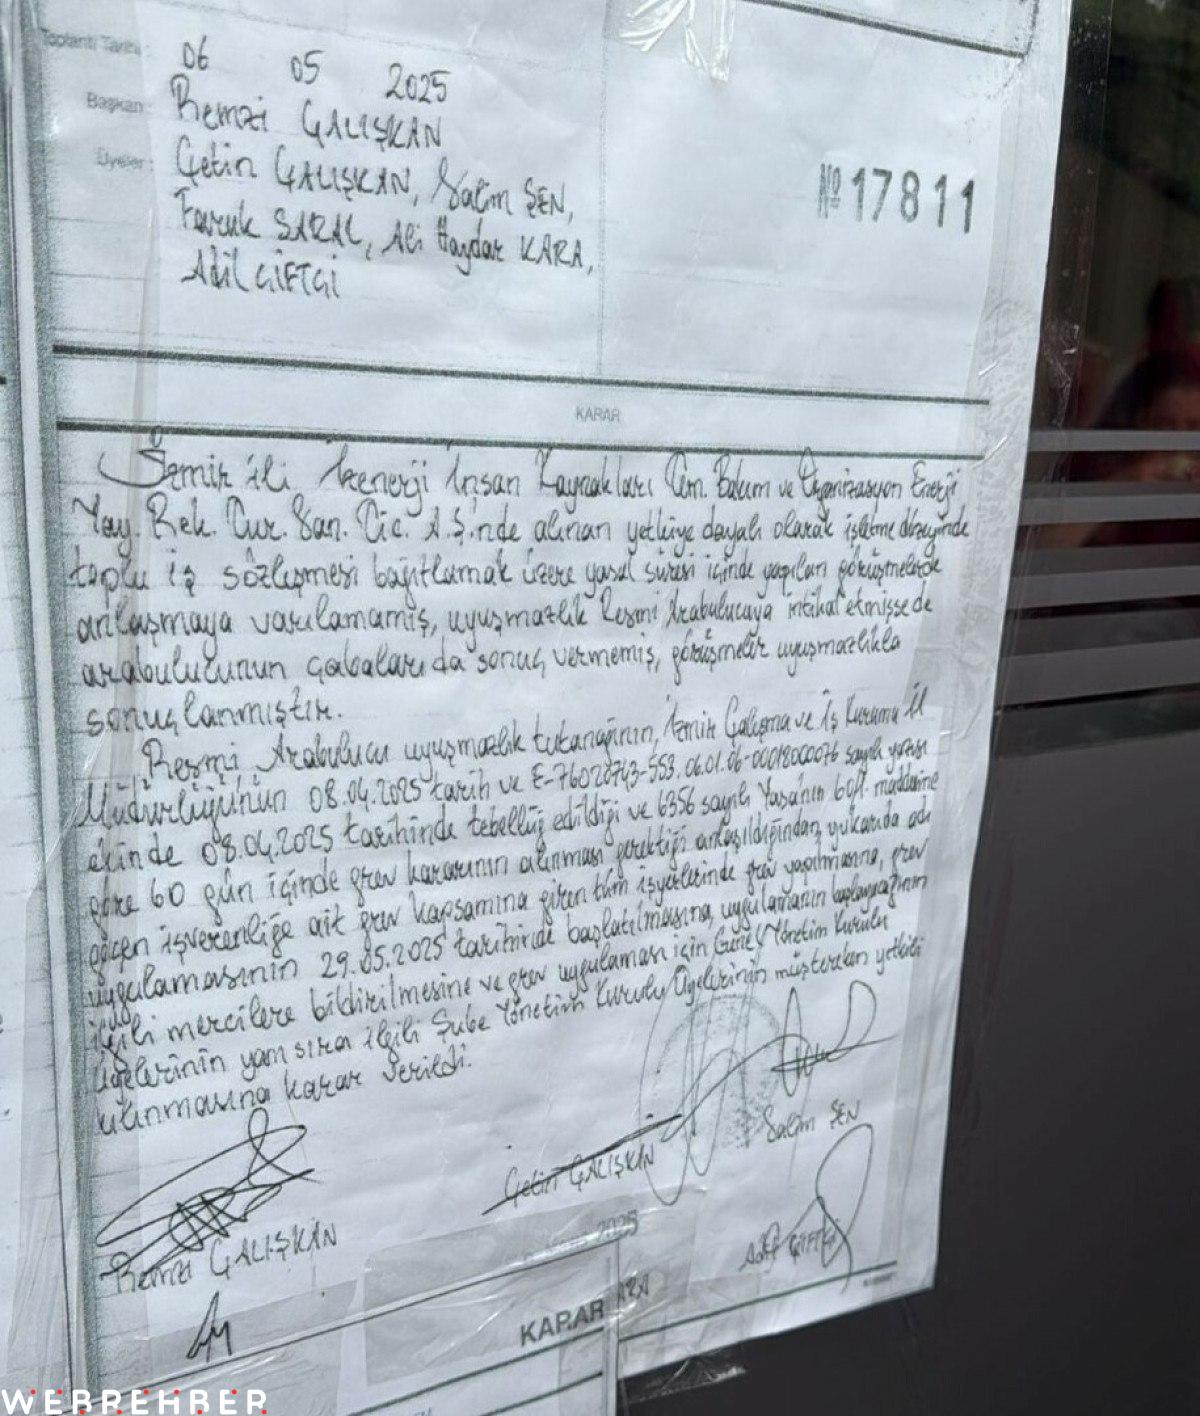 Toplantı Tarihi: 06 05 2025
Başkan: Remzi ÇALIŞKAN
Üyeler: Çetin ÇALIŞKAN, Salim ŞEN,
Faruk SARAL, Ali Haydar KARA,
Adil ÇİFTÇİ
No 17811
KARAR
İzmir ili İzenerji İnsan Kaynakları Tem. Bakım ve Organizasyon Enerji
Yay. Rek. Tur. San. Tic. A.Ş.nde alınan yetkiye dayalı olarak işletme düzeyinde
toplu iş sözleşmesi bağıtlamak üzere yasal süresi içinde yapılan görüşmelerde
anlaşmaya varılamamış, uyuşmazlık Resmi Arabulucaya intikal etmişsede
arabulucunun çabaları da sonuç vermemiş, görüşmeler uyuşmazlıkla
sonuçlanmıştır.
Resmi Arabulucu uyuşmazlık tutanağının, İzmir Çalışma ve İş Kurumu İl
Müdürlüğünün 08.04.2025 tarih ve E-76020743-553.06.01.06-00018000076 sayılı yazısı
ekinde 08.04.2025 tarihinde tebellüğ edildiği ve 6356 sayılı Yasa'nın 60/1. maddesine
göre 60 gün içinde grev kararının alınması gerektiği anlaşıldığından, yukarıda adı
geçen işverenliğe ait grev kapsamına giren tüm işyerlerinde grev yapılmasına, grev
uygulamasının 29.05.2025 tarihinde başlatılmasına, uygulamanın başlayacağının
ilgili mercilere bildirilmesine ve grev uygulaması için Genel Yönetim Kurulu
üyelerinin yanı sıra ilgili Şube Yönetim Kurulu Üyelerinin müştereken yetkili
kılınmasına karar verildi.
Remzi ÇALIŞKAN
Çetin ÇALIŞKAN
Salim ŞEN
Adil ÇİFTÇİ
2025
KARAR
ARA
WEBREHBER